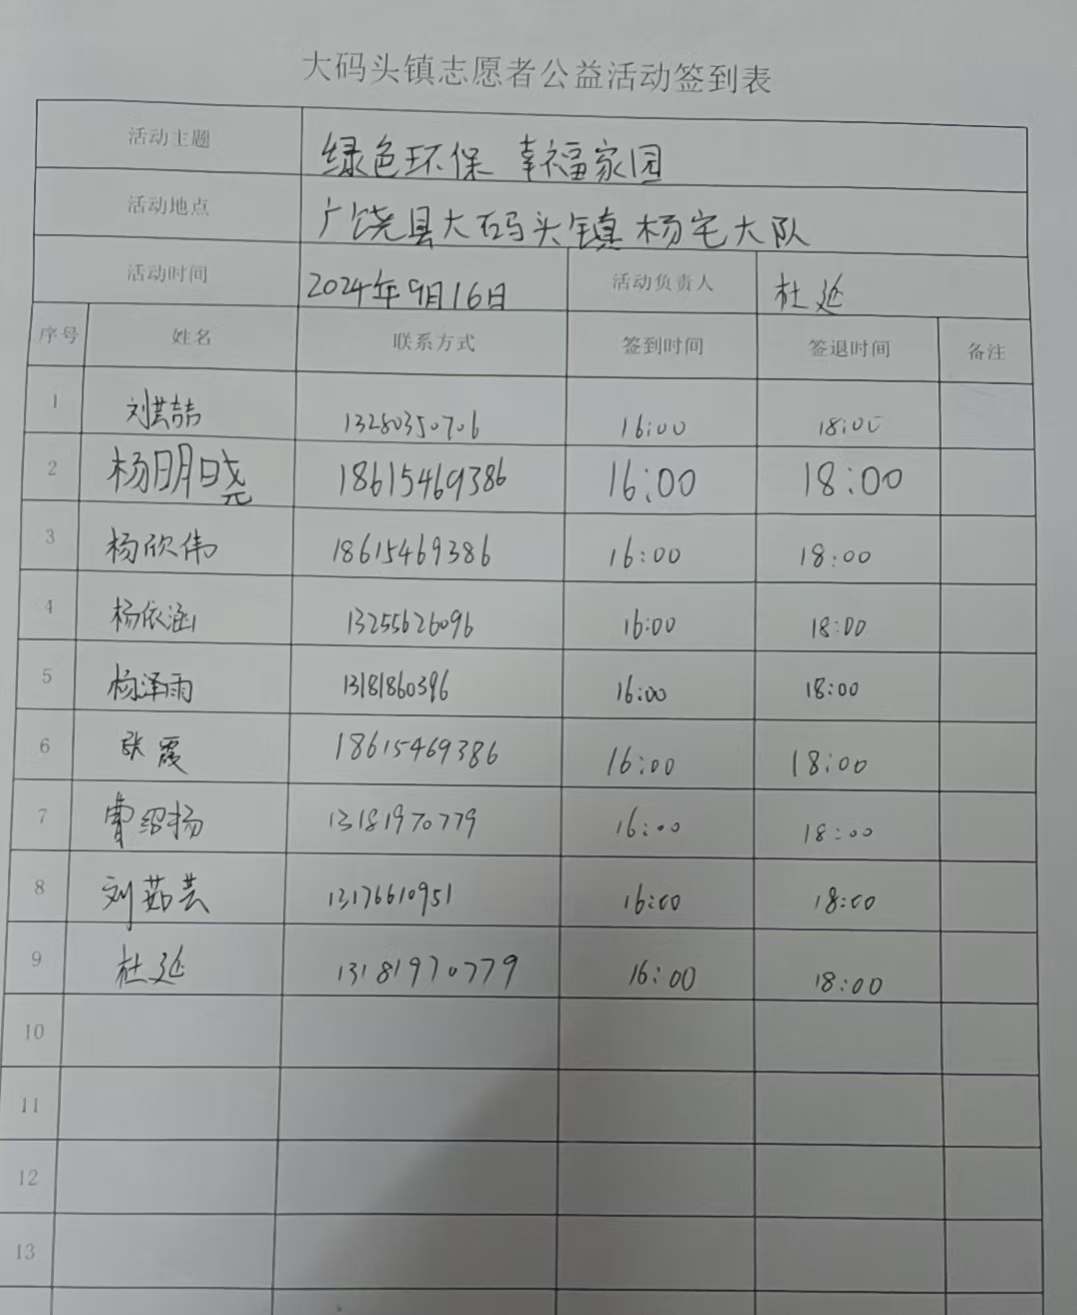 大码头镇志愿者公益活动签到表
活动主题 绿色环保 幸福家园
活动地点 广饶县大码头镇杨宅大队
活动时间 2024年9月16日 活动负责人 杜延
序号 姓名 联系方式 签到时间 签退时间 备注
1 刘芸喆 13280350706 16:00 18:00
2 杨明晓 18615469386 16:00 18:00
3 杨欣伟 18615469386 16:00 18:00
4 杨依涵 13255626096 16:00 18:00
5 杨泽雨 13181860396 16:00 18:00
6 张霞 18615469386 16:00 18:00
7 曹绍扬 13181970779 16:00 18:00
8 刘茹芸 13176610951 16:00 18:00
9 杜延 13181970779 16:00 18:00
10
11
12
13